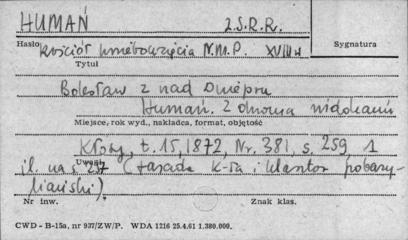 HUMAŃ Z.S.R.R.
Hasło Kościół Wniebowzięcia N.M.P. XVIII w Sygnatura
Tytuł
Bolesław z nad Dniepru
Humań. Z dwoma widokami
Miejsce, rok wyd., nakładca, format, objętość
Kłosy, t. 15, 1872, Nr. 381, s. 259, 1
Uwagi
il. na s. 257 (fasada K-ła i klasztor pobazy-
liański).
Nr inw. Znak klas.
CWD - B-15a, nr 937/ZW/P. WDA 1216 25.4.61 1.380.000.